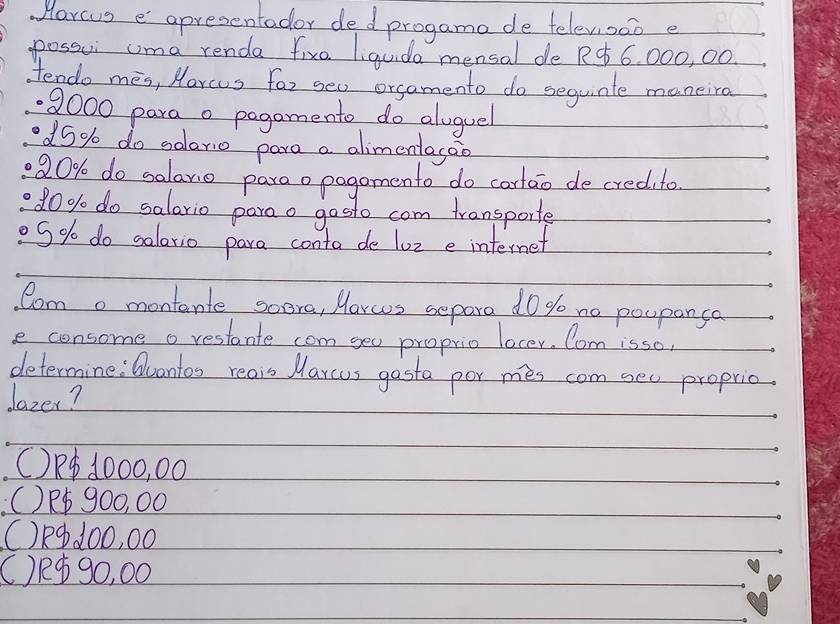 Marcus é apresentador de 1 progama de televisão e
possui uma renda fixa liquida mensal de R$ 6.000,00.
Tendo mês, Marcus faz seu orçamento da seguinte maneira
•2000 para o pagamento do aluguel
•15% do salario para a alimentação
•20% do salario para o pagamento do cartão de credito.
•10% do salario para o gasto com transporte
•5% do salario para conta de luz e internet
Com o montante soBra, Marcus separa 10% na poupança
e consome o restante com seu proprio lacer. Com isso,
determine: Quantos reais Marcus gasta por mês com seu proprio
lazer?
( )R$ 1000,00
( )R$ 900,00
( )R$ 100,00
( )R$ 90,00